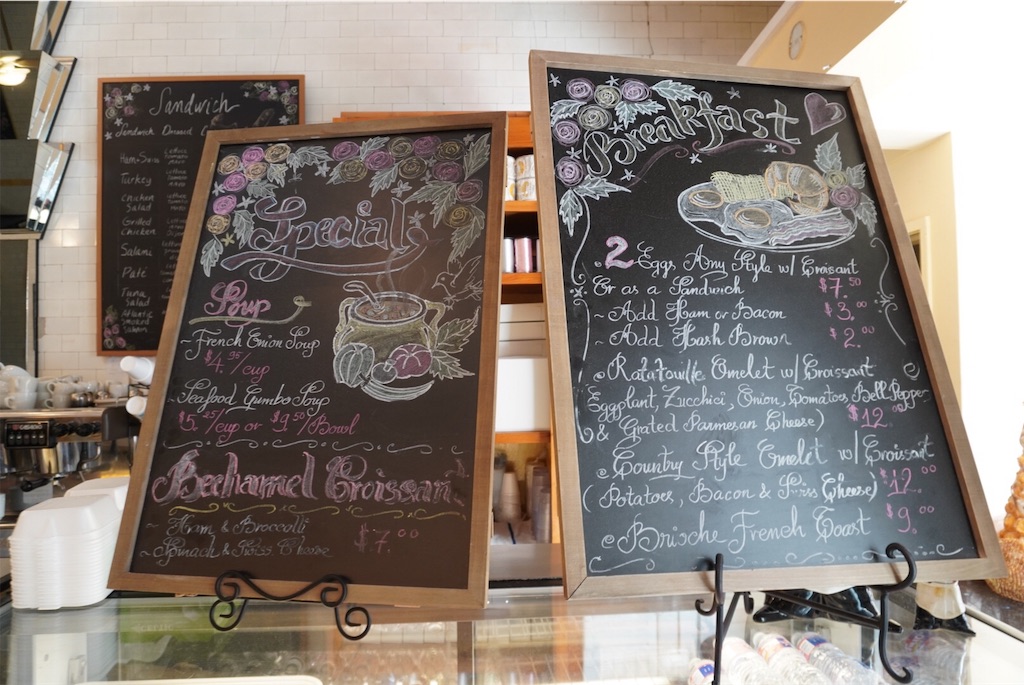 Sandwich
Sandwich Dressed
Turkey
Chicken
Salad
Grilled
Chicken
Salami
Paté
Tuna
Salad
Atlantic
Smoked
Salmon
Lettuce
Tomato
Mayo
Specials
Soup
French Onion Soup
$4.95/cup
~ Seafood Gumbo Soup
$5.25/cup or $9.50/Bowl
Bechamel Croissant
~ Ham & Broccoli
~ Spinach & Swiss Cheese
$7.00
Breakfast
2 Eggs Any Style w/ Croissant
Or as a Sandwich $7.50
~ Add Ham or Bacon $3.00
~ Add Hash Brown $2.00
Ratatouille Omelet w/ Croissant
(Eggplant, Zucchici, Onion, Tomatoes Bell Pepper
& Grated Parmesan Cheeze) $12.00
Country Style Omelet w/ Croissant
(Potatoes, Bacon & Swiss Cheese) $12.00
Brische French Toast $9.00